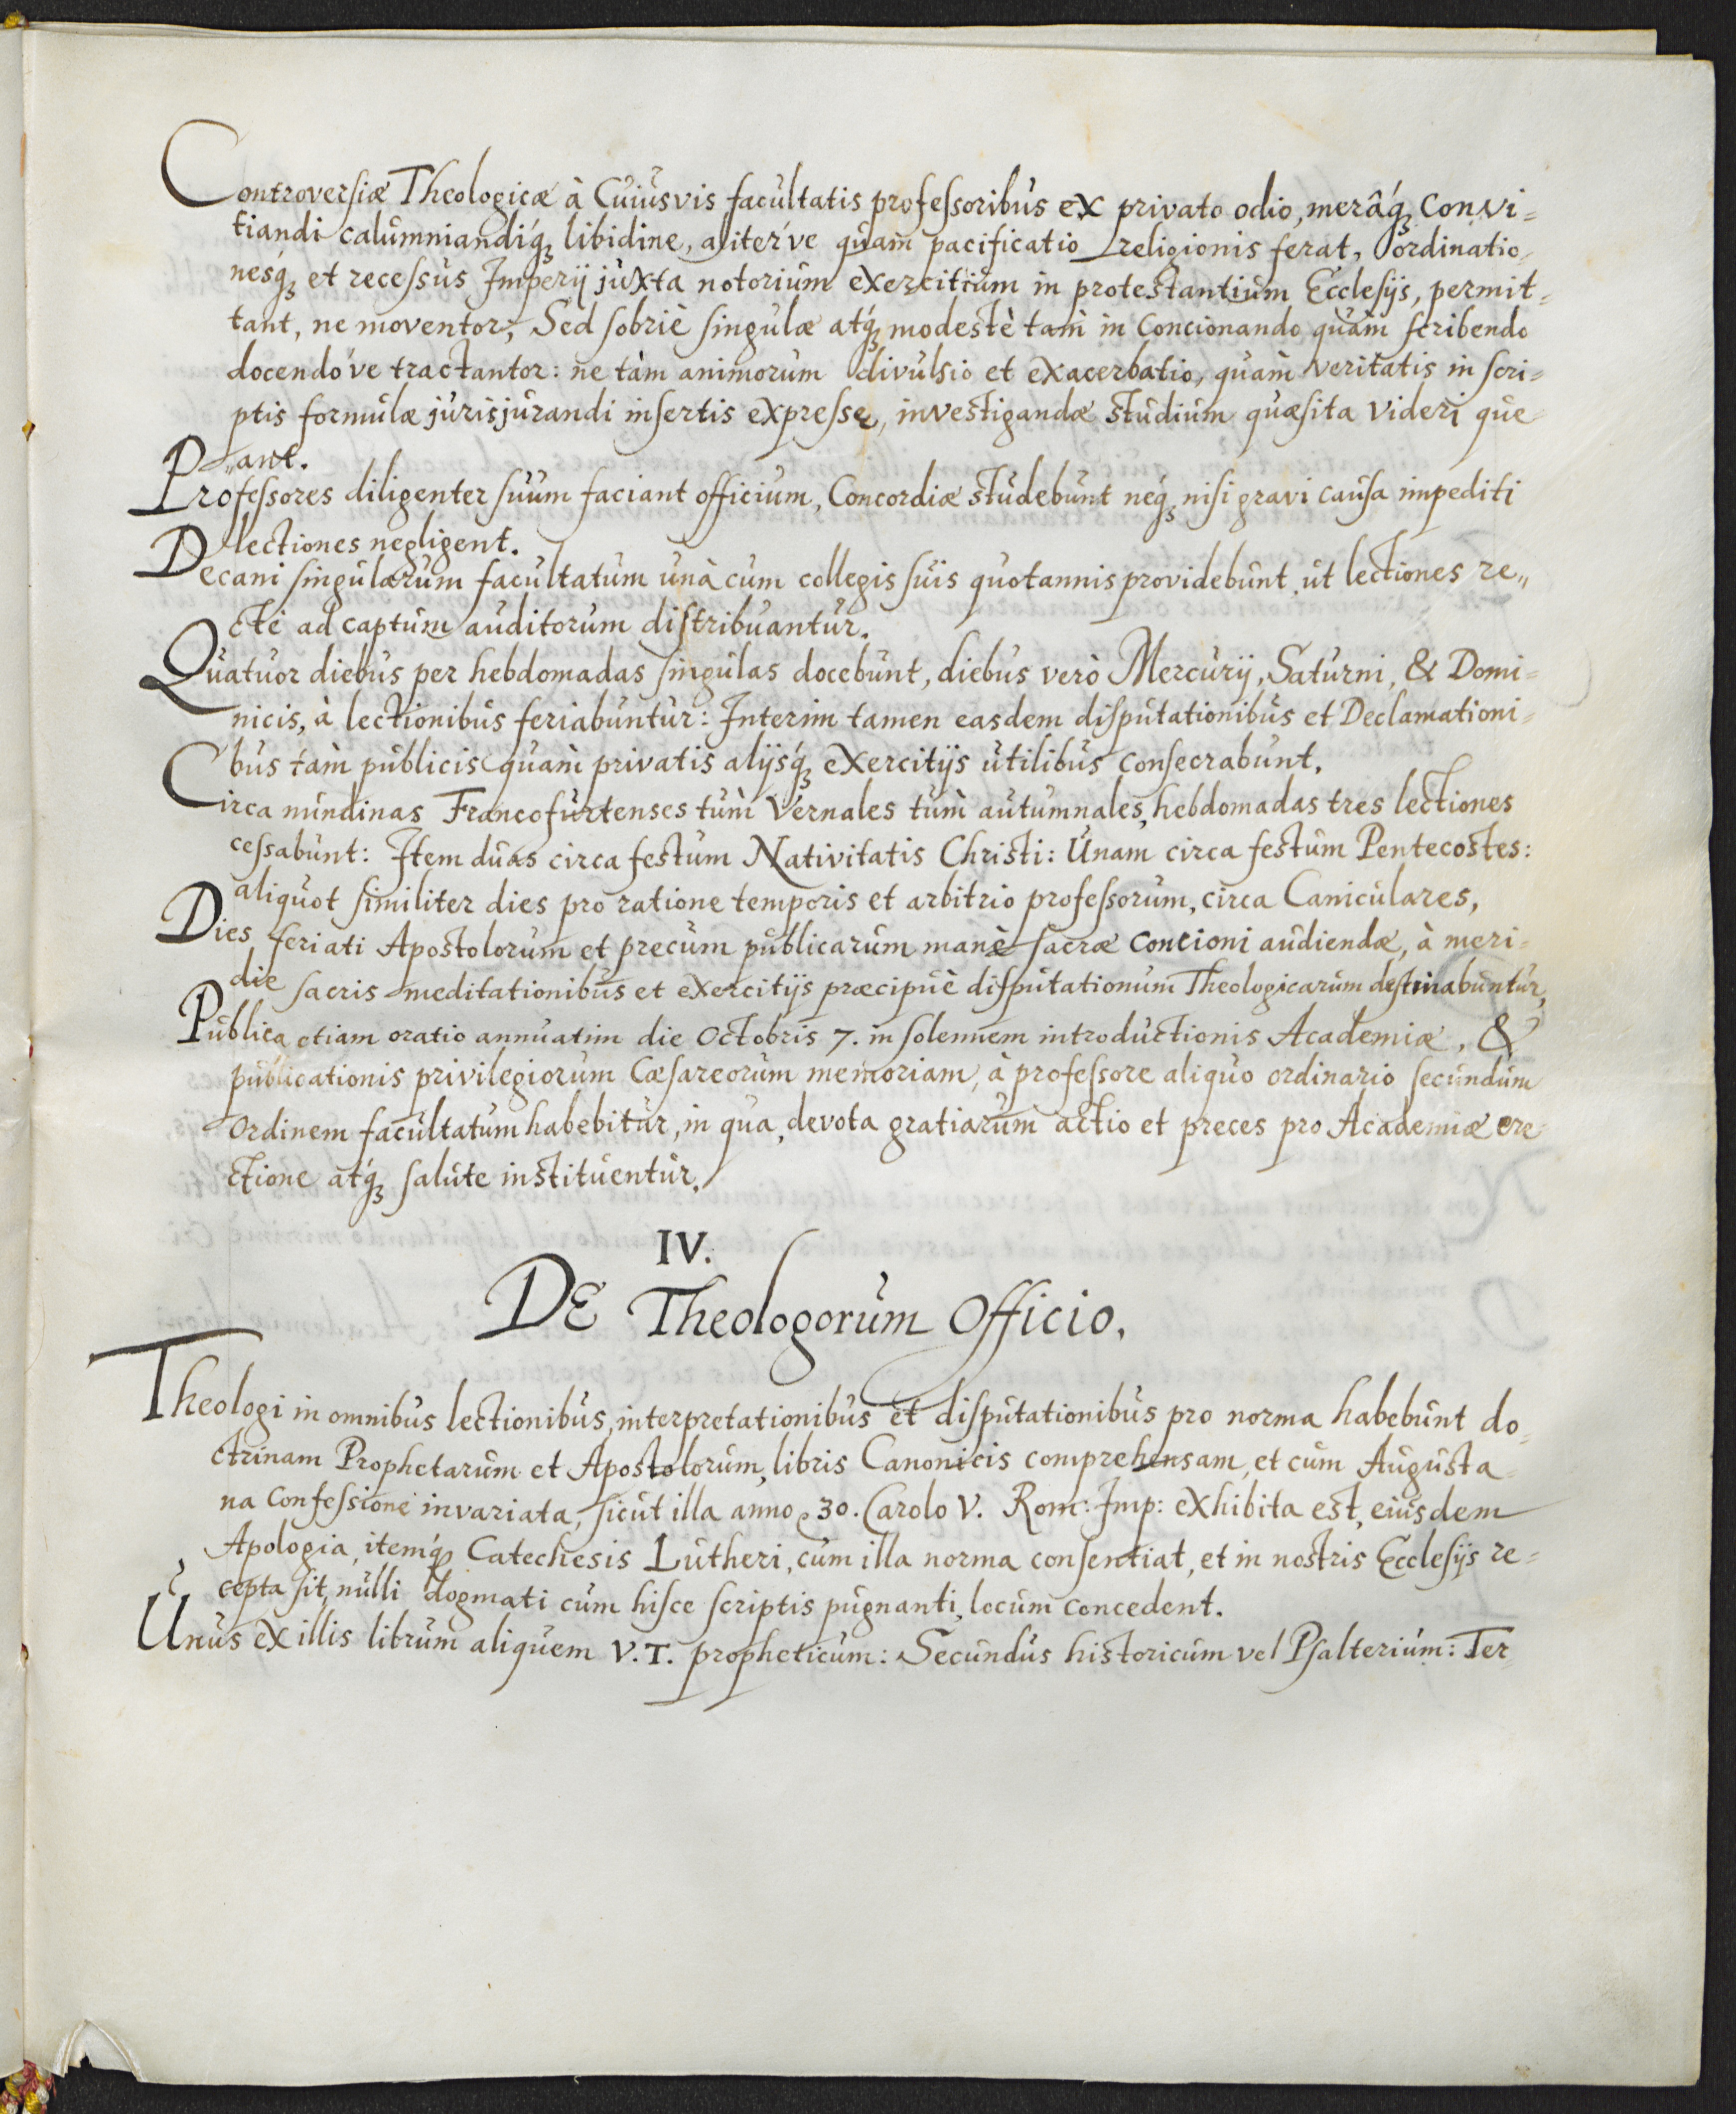 Controversiæ Theologicæ à Cuiusvis facultatis professoribus ex privato odio, merâq́ꝫ convi=
tiandi calumniandiq́ꝫ libidine, aliter've quam pacificatio religionis ferat, ordinatio
nesq́ꝫ et recessus Imperij juxta notorium exercitium in protestantium Ecclesijs, permit=
tant, ne moventor; Sed sobriè singulæ atq́ꝫ modestè tam in Concionando quàm scribendo
docendo've tractantor: ne tàm animorum divulsio et exacerbatio, quàm veritatis in scri=
ptis formulæ jurisjurandi insertis expresse, investigandæ studium quæsita videri que
„ant.
Professores diligenter suum faciant officium, Concordiæ studebunt neq́ꝫ nisi gravi causa impediti
lectiones negligent.
Decani singularum facultatum unà cum collegis suis quotannis providebunt ut lectiones re„
ctè ad captum auditorum distribuantur.
Quatuor diebus per hebdomadas singulas docebunt, diebus verò Mercurij, Saturni, & Domi=
nicis, à lectionibus feriabuntur: Interim tamen easdem disputationibus et Declamationi=
bus tàm publicis quàm privatis alijsq́ꝫ exercitijs utilibus consecrabunt.
Circa nundinas Francofurtenses tùm Vernales tùm autumnales, hebdomadas tres lectiones
cessabunt: Item duas circa festum Nativitatis Christi: Unam circa festum Pentecostes:
aliquot similiter dies pro ratione temporis et arbitrio professorum, circa Caniculares,
Dies feriati Apostolorum et precum publicarum manè sacræ concioni audiendæ, à meri=
die sacris meditationibus et exercitijs præcipuè disputationum Theologicarum destinabuntur,
Publica etiam oratio annuatim die Octobris 7. in solennem introductionis Academiæ, &
publicationis privilegiorum Cæsareorum memoriam, à professore aliquo ordinario secundum
ordinem facultatum habebitur, in qua, devota gratiarum actio et preces pro Academiæ ere=
ctione atq́ꝫ salute instituentur.
IV.
DE Theologorum Officio.
Theologi in omnibus lectionibus, interpretationibus et disputationibus pro norma habebunt do=
ctrinam Prophetarum et Apostolorum, libris Canonicis comprehensam, et cum Augusta=
na Confessione invariata, sicut illa anno, 30. Carolo V. Rom: Imp: exhibita est, eiusdem
Apologia, itemq́ꝫ Catechesis Lutheri, cum illa norma consentiat, et in nostris Ecclesijs re=
cepta sit, nulli dogmati cum hisce scriptis pugnanti, locum concedent.
Unus ex illis librum aliquem V.T. propheticum: Secundus historicum vel Psalterium: Ter=